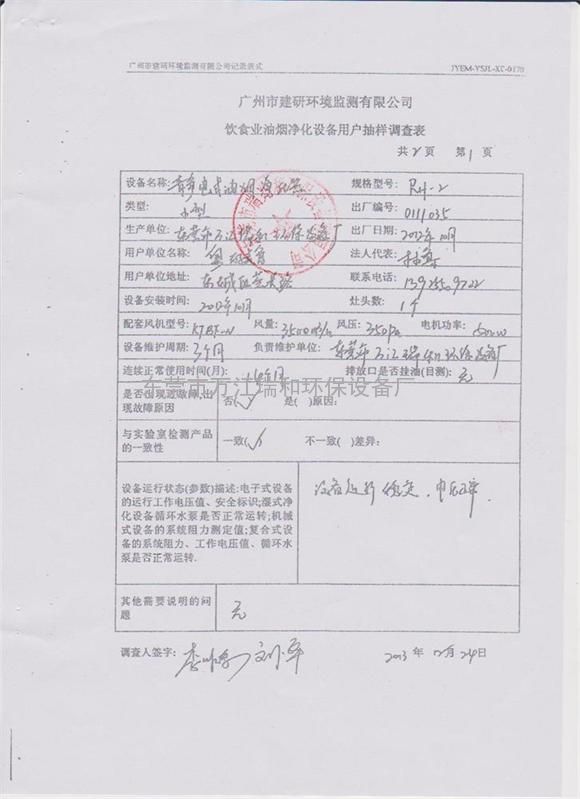 广州市建研环境监测有限公司记录表式 JYEM-YSJL-XC-0170
广州市建研环境监测有限公司
饮食业油烟净化设备用户抽样调查表
共2页 第1页
设备名称: 静电式油烟净化器 规格型号: RH-2
类型: 小型 出厂编号: 0111035
生产单位: 东莞市万江瑞和环保设备厂 出厂日期: 2012年10月
用户单位名称: 法人代表:
用户单位地址: 东城区 联系电话:
设备安装时间: 2012年10月 灶头数: 1个
配套风机型号: 风量: 3500m³/h 风压: 350Pa 电机功率:
设备维护周期: 3个月 负责维护单位: 东莞市万江瑞和环保设备厂
连续正常使用时间(月): 排放口是否挂油(目测): 无
东莞市万江瑞和环保设备厂
是否出现过故障,出现故障原因 否(✓) 是( )原因:
与实验室检测产品的一致性 一致(✓) 不一致( )差异:
设备运行状态(参数)描述:电子式设备
的运行工作电压值、安全标识;湿式净
化设备循环水泵是否正常运转;机械
式设备的系统阻力测定值;复合式设
备的系统阻力、工作电压值、循环水
泵是否正常运转.
设备运行稳定,电压正常
其他需要说明的问题 无
调查人签字: 2013年12月24日